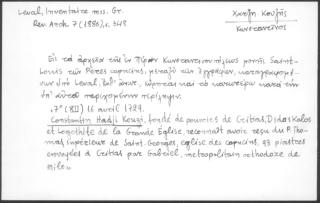 Laval, Inventaire mss. Gr.
Rev. Arch. 7 (1886), σ. 348
Χατζῆ Κουζῆς
Κωνσταντῖνος
Εἰς τὰ ἀρχεῖα τῶν ἐν Πέραν Κωνσταντινουπόλεως μονῆς Saint-
Louis τῶν Pères capucins, μεταξὺ τῶν ἐγγράφων,
ὑπὸ Laval, ἔνθ' ἀνωτ., καὶ τὸ κατωτέρω κατὰ τὴν
ὑπ' αὐτοῦ περίληψιν.
"7° (BΙΙ) 16 avril 1729.
Constantin Hadji Kouzi, fondé de pouvoirs de Critias, Didaskalos
et Logothète de la Grande Église, reconnaît avoir reçu du P. Tho-
mas, supérieur de Saint-Georges, église des capucins, 93 piastres
envoyées à Critias par Gabriel, métropolitain orthodoxe de
Milo."